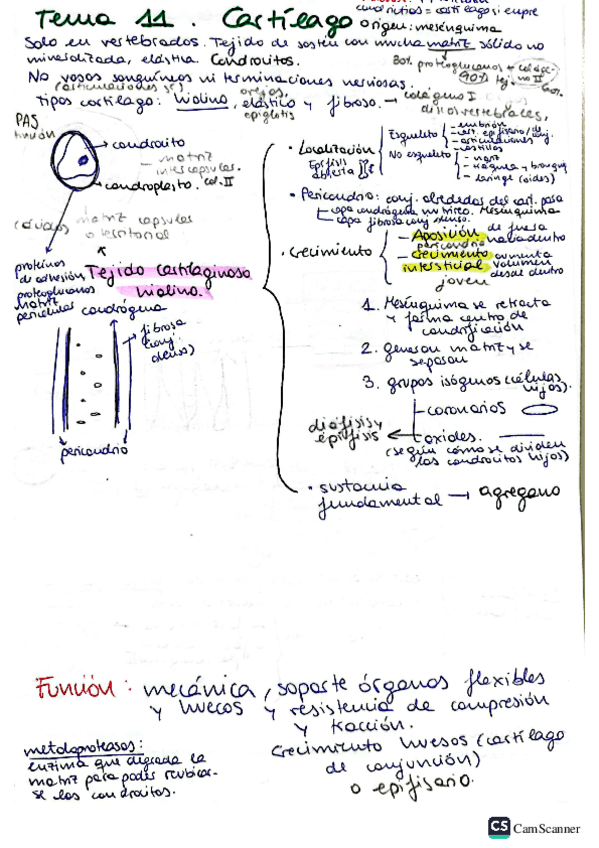 Tema 11. Cartílago
condrictios = cartílago siempre
origen: mesénquima
Solo en vertebrados. Tejido de sostén con mucha matriz sólida no
mineralizada, elástica. Condrocitos.
80% proteoglucanos + colágeno II
No vasos sanguíneos ni terminaciones nerviosas.
(articulaciones)
orejas,
Tipos cartílago: hialino, elástico y fibroso. → colágeno I
epiglotis
discos vertebrales,
PAS
tinción
→ condrocito
- matriz
intercapsular.
→ condroplasto. col. II
matriz capsular
o territorial
proteínas
de adhesión
proteoglucanos
matriz
pericelular
Tejido cartilaginoso
hialino.
condrógena
→ fibrosa
(conj.
denso)
pericondrio
· Localización
Epífisis
abierta
Esqueleto
- embrión
- cart. epifisario / conj.
- articulaciones
- costillas
No esqueleto
- nariz
- tráquea y bronquios
- laringe
· Pericondrio: conj. alrededor del cart. pasa
capa condrógena nutrirea. Mesénquima
capa fibrosa conj. denso.
· Crecimiento
- Aposición de fuera
hacia dentro
pericondrio
- Crecimiento aumenta
intersticial volumen
desde dentro
joven
1. Mesénquima se retracta
y forma centro de
condrificación
2. generan matriz y se
separan
3. grupos isógenos (células
hijas).
- coronarios
diáfisis y
epífisis
← axiales.
(según cómo se dividen
los condrocitos hijos)
· sustancia
fundamental → agrecano
Función: mecánica, soporte órganos flexibles
y huecos y resistencia de compresión
y tracción.
Crecimiento huesos (cartílago
de conjunción)
o epifisario.
metaloproteasas:
enzima que degrada la
matriz para poder reubicar-
se los condrocitos.
CS CamScanner